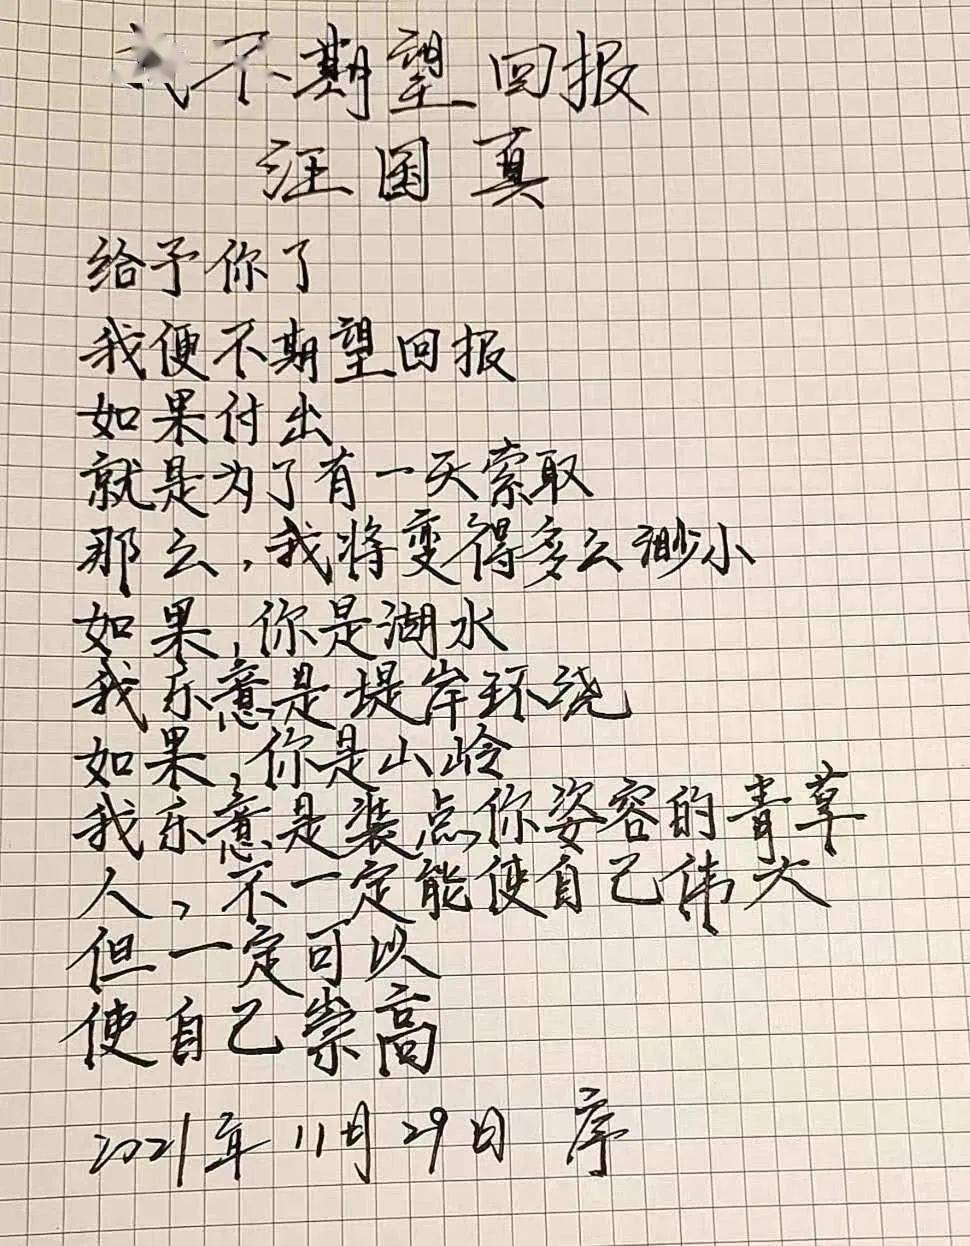 我不期望回报
汪国真
给予你了
我便不期望回报
如果付出
就是为了有一天索取
那么,我将变得多么渺小
如果,你是湖水
我乐意是堤岸环绕
如果,你是山岭
我乐意是装点你姿容的青草
人,不一定能使自己伟大
但一定可以
使自己崇高
2021年11月29日 序